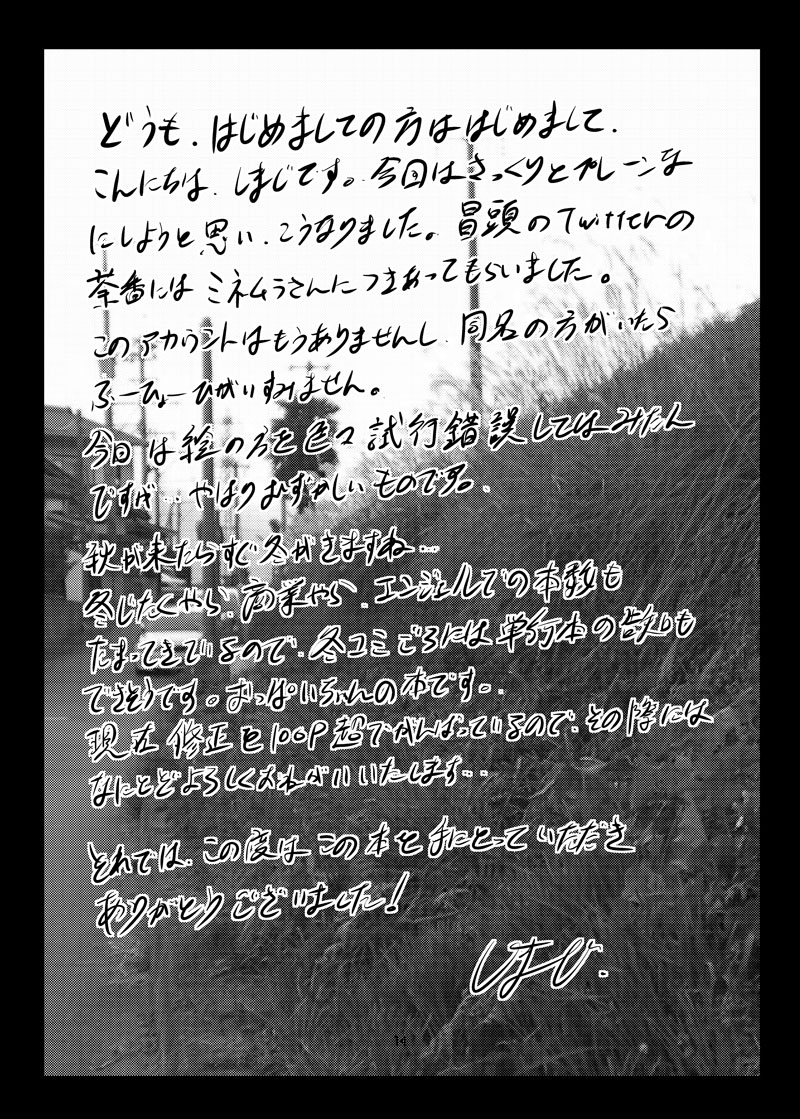 どうも、はじめましての方ははじめまして、
こんにちは、しまじです。今回はさっくりとプレーンま
にしようと思い、こうなりました。冒頭のTwitterの
茶番には ミネムラさんにつきあってもらいました。
このアカウントはもうありませんし、同名の方がいたら
ふーひょーひがいすみません。
今回は絵の方を色々試行錯誤してはみたん
ですが… やはりむずかしいものです。
秋が来たらすぐ冬がきますね…
冬じたくやら、商業やら、エンジェルでの本数も
たまってきているので、冬コミごろには単行本の
できそうです。おっぱいちゃんの本です。
現在修正を100P超でがんばっているので、その際には
なにとぞよろしくおねがいいたします…
それでは、この度はこの本を手にとっていただき
ありがとうございました!
14